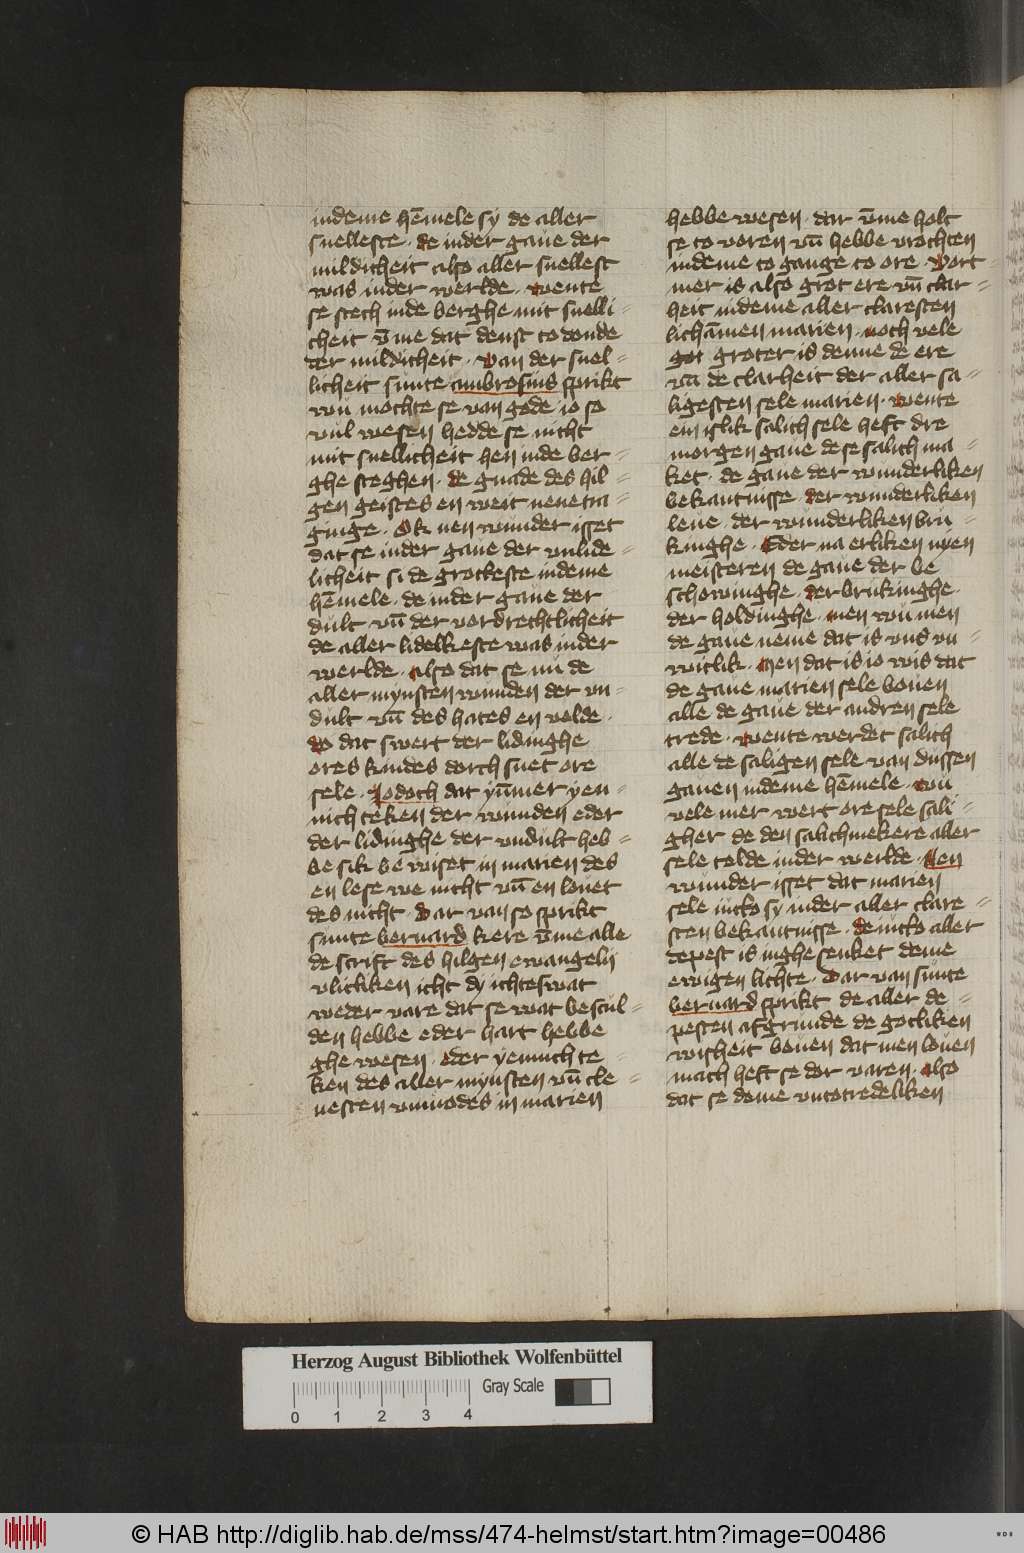 indeme hēmele sy de aller
snelleste · de inder gaue der
mildicheit also aller snellest
was inder werlde · wente
se stech inde berghe mit snelli=
cheit v̄me dat denst to donde
der mildicheit · van der snel=
licheit sunte ambrosius sprikt
wu mochte se van gode io so
vul wesen hedde se nicht
mit snellicheit hen inde ber=
ghe steghen · de gnade des hil=
gen geistes en weit nene tra=
ginge · Ok nen wunder isset
dat se inder gaue der
licheit si de grotkeste indeme
hēmele · de inder gaue der
dult vn̄ der vordrechtlicheit
de aller lidelkeste was inder
werlde · also dat se nu de
aller mynsten wunden der vn=
dult vn̄ des hates en volde ·
do dat swert der lidinghe
ores kindes dorch snet ore
sele · Jodoch dat yūmer yen=
nich teken der wunden eder
der lidinghe der vndult heb=
be sik bewiset in marien des
en lese we nicht vn̄ en louet
des nicht · dar van so sprikt
sunte bernard kere v̄me alle
de scrift des hilgen ewangelij
vlitliken icht dy ichteswat
weder vare dat se wat bescul=
den hebbe eder hart hebbe
ghe wesen · eder yennich te=
ken des aller mynsten vn̄ cle=
nesten vnmodes in marien
hebbe wesen · dar v̄me holt
se to voren vn̄ hebbe vrochten
indeme to gange to ore · Vort=
mer is also grot ere vn̄ clar=
heit indeme aller claresten
lichāmen marien · noch vele
got groter is denne de ere
vn̄ de clarheit der aller sa=
ligesten sele marien · wente
ein islik salich sele heft dre
morgen gaue de se salich ma=
ket · de gaue der wunderliken
bekantnisse · der wunderliken
leue · der wunderliken bru=
kinghe · Eder na erliken nyen
meisteren de gaue der be
schowinghe · der brukinghe ·
der holdinghe · men wu men
de gaue neme dat is vns vn=
witlik · Men dat is io wis dat
de gaue marien sele bouen
alle de gaue der andren sele
trede · wente werdet salich
alle de saligen sele van dussen
gauen indeme hēmele · wu
vele mer wert ore sele sali=
gher de den salichmekere aller
sele telde inder werlde · Nen
wunder isset dat marien
sele iutko sy inder aller clare=
sten bekantnisse · de iutko aller
depest is inghe senket deme
ewigen lichte · Dar van sunte
bernard sprikt de aller de=
pesten afgrunde de gotliken
wisheit bouen dat men louen
mach heft se dor varen · also
dat se deme vntotredeliken
Herzog August Bibliothek Wolfenbüttel
Gray Scale
0 1 2 3 4
© HAB http://diglib.hab.de/mss/474-helmst/start.htm?image=00486